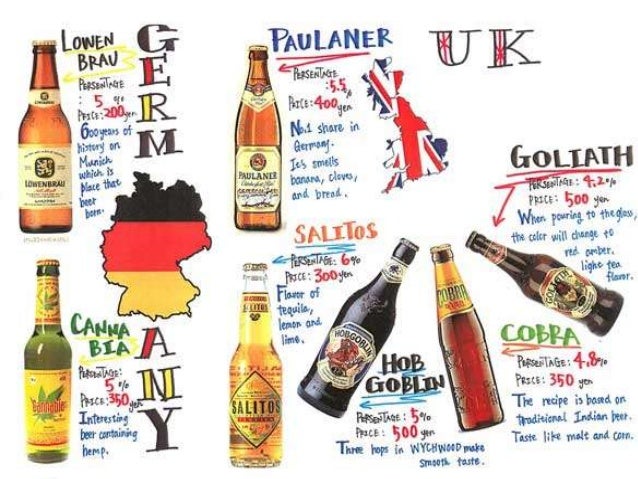 GERMANY
LOWEN
BRAU
PERSENTAGE
: 5 %
PRICE: 200yen
600years of
history on
Munich
which is
place that
beer
born.
LÖWENBRÄU
PAULANER
PERSENTAGE
: 5.5%
PRICE: 400yen
No.1 share in
Germany.
It's smells
banana, cloves,
and bread.
PAULANER
UK
GOLIATH
PERSENTAGE: 4.2%
PRICE: 500 yen
When pouring to the glass,
the color will change to
red amber.
light tea
flavor.
GOLIATH
SALITOS
PERSENTAGE: 6%
PRICE: 300yen
Flavor of
tequila,
lemon and
lime.
SALITOS
CANNA
BIA
PERSENTAGE:
5 %
PRICE: 350yen
Interesting
beer containing
hemp.
cannabia
HOBGOBLIN
HOB
GOBLIN
PERSENTAGE: 5%
PRICE: 500 yen
Three hops in WYCHWOOD make
smooth taste.
COBRA
COBRA
PERSENTAGE: 4.8%
PRICE: 350 yen
The recipe is based on
traditional Indian beer.
Taste like malt and corn.